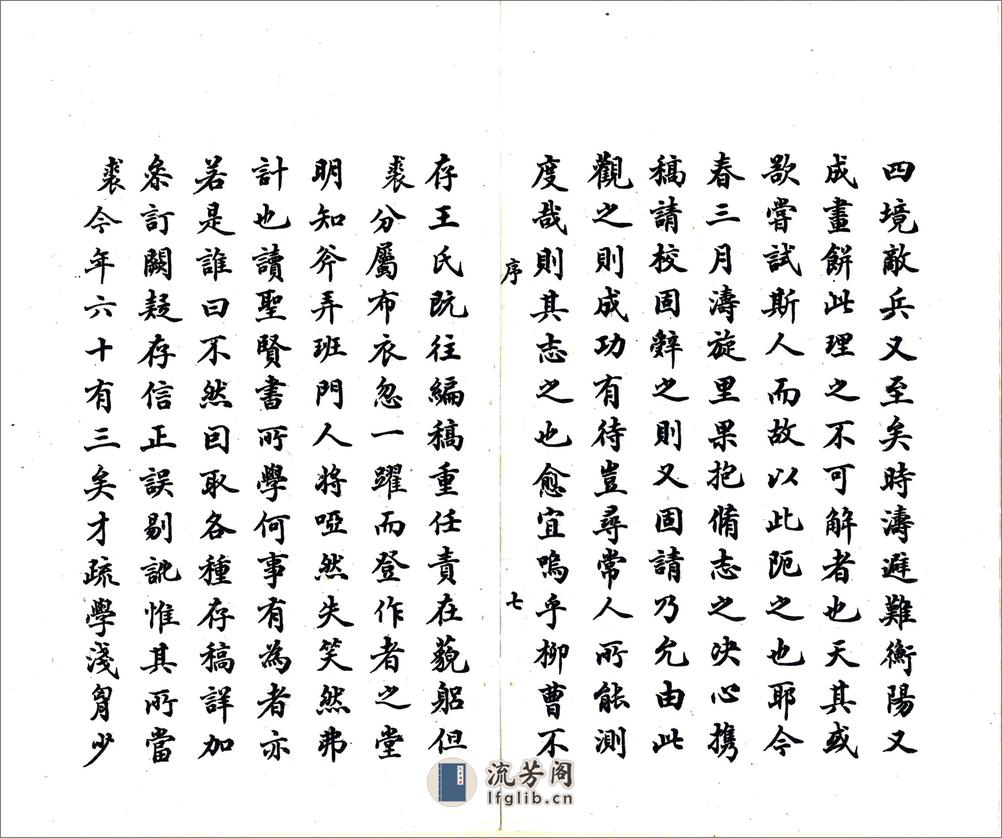 四境敵兵又至矣時濤避難衡陽又
成畫餅此理之不可解者也天其或
歆嘗試斯人而故以此阨之也耶今
春三月濤旋里果抱脩志之决心攜
稿請校固辤之則又固請乃允由此
觀之則成功有待豈尋常人所能測
度哉則其志之也愈宜嗚乎柳曹不
序
七
存王氏既往編稿重任責在藐躬但
裘分屬布衣忽一躍而登作者之堂
明知斧弄班門人將啞然失笑然弗
計也讀聖賢書所學何事有為者亦
若是誰曰不然因取各種存稿詳加
叅訂闕疑存信正誤剔訛惟其所當
裘今年六十有三矣才疏學淺胷少
流芳阁
lfglib.cn